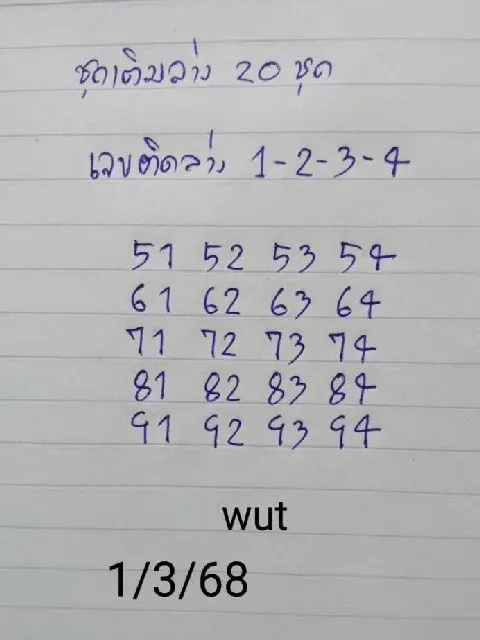 ชุดเติมล่าง 20 ชุด
เลขติดล่าง 1-2-3-4
51 52 53 54
61 62 63 64
71 72 73 74
81 82 83 84
91 92 93 94
wut
1/3/68